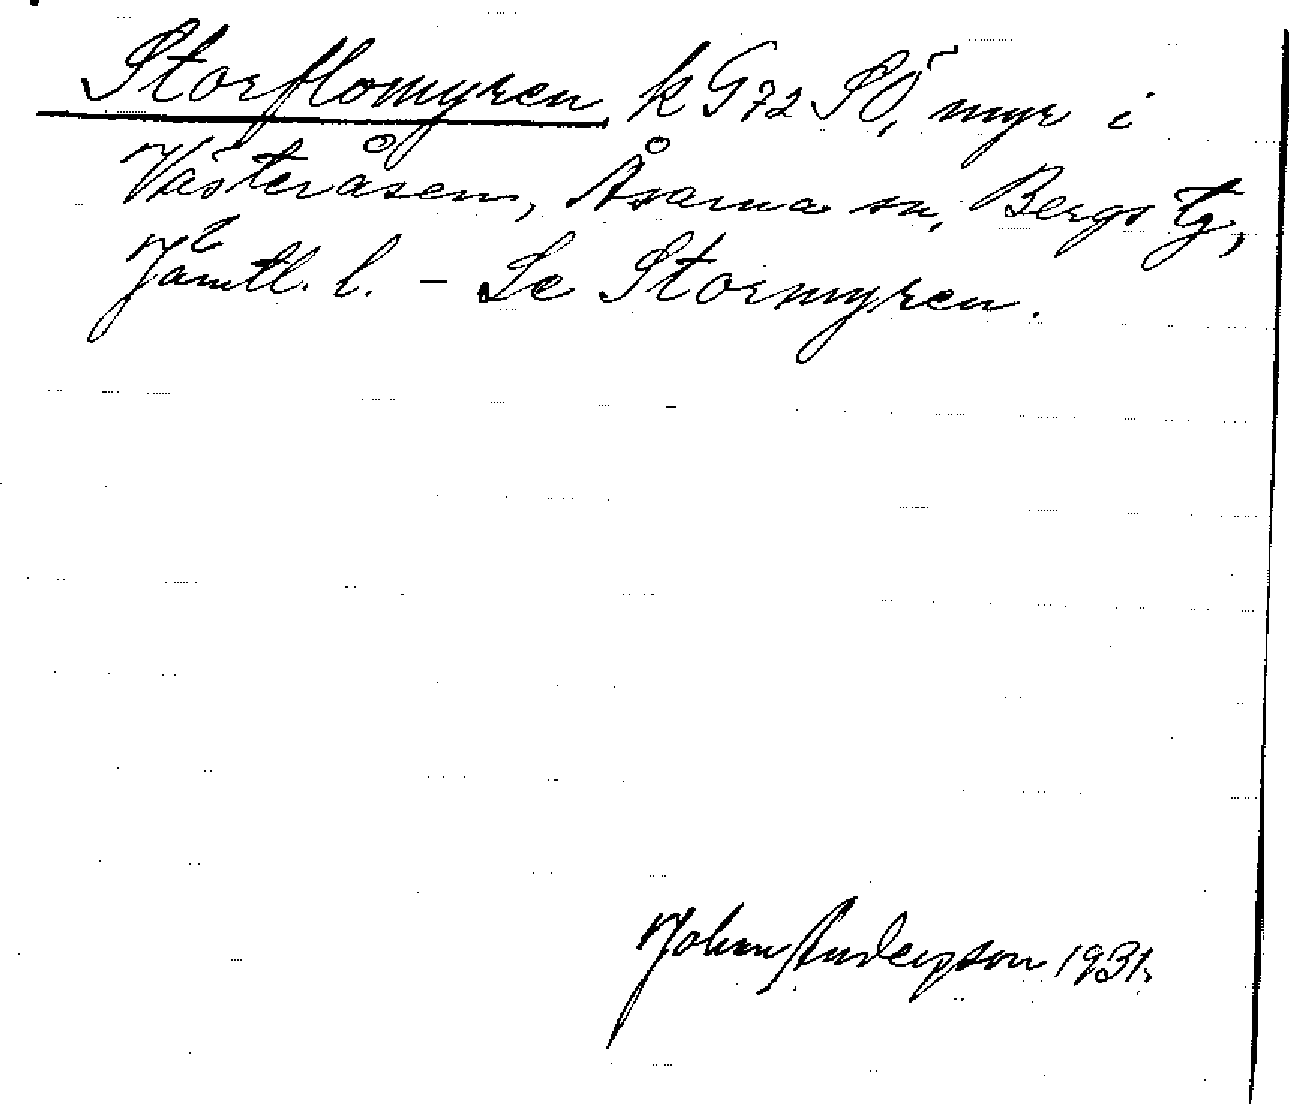 Storflomyren k G72 SÖ, myr i
Västeråsen, Åsarna sn, Bergs tg,
Jämtl. l. – Se Stormyren.
John Andersson 1931.